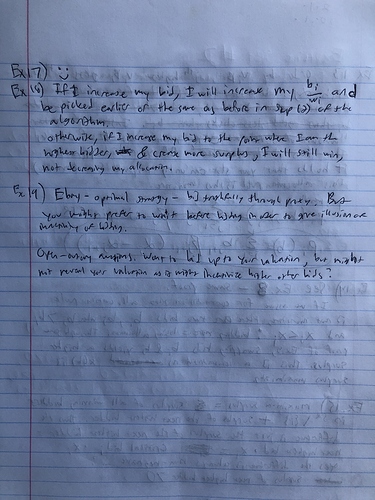 Ex 17) :)
Ex 18) If I increase my bid, I will increase my bi/wi and
be picked earlier or the same as before in step (2) of the
algorithm.
otherwise, if I increase my bid to the point where I am the
highest bidder, & create more surplus, I will still win,
not decreasing my allocation.
Ex 19) Ebay - optimal strategy - bid truthfully through proxy. But
you might prefer to wait before bidding in order to give illusion of
of bidding.
Open-outcry auctions. Want to bid up to your valuation, but might
not reveal your valuation as it might incentivize higher other bids?